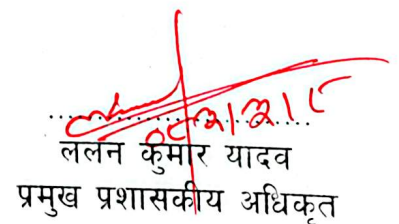 ललन कुमार यादव
प्रमुख प्रशासकीय अधिकृत